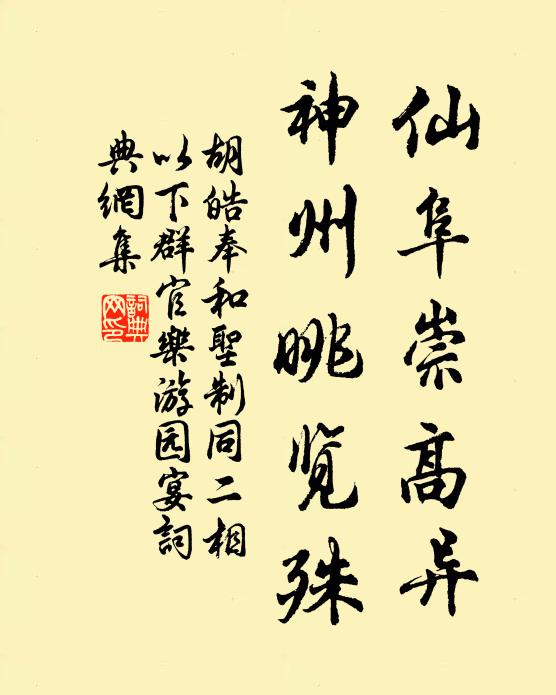 仙阜崇高异
神州眺览殊
胡皓奉和聖制同二相
以下群官樂游园宴詞
典網集
詞典网印